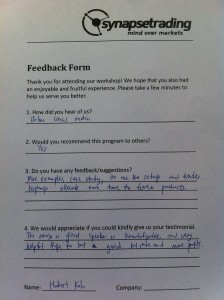 synapsetrading
mind over markets
Feedback Form
Thank you for attending our workshop! We hope that you also had
an enjoyable and fruitful experience. Please take a few minutes to
help us serve you better.
1. How did you hear of us?
Online social media
2. Would you recommend this program to others?
Yes
3. Do you have any feedback/suggestions?
More examples, case study, to see the setup and trades
allocate more time to forex products
4. We would appreciate if you could kindly give us your testimonial.
The course is good. Speaker is knowledgeable and very
helpful. Hope for a good and more
Name: Hubert Koh Company: